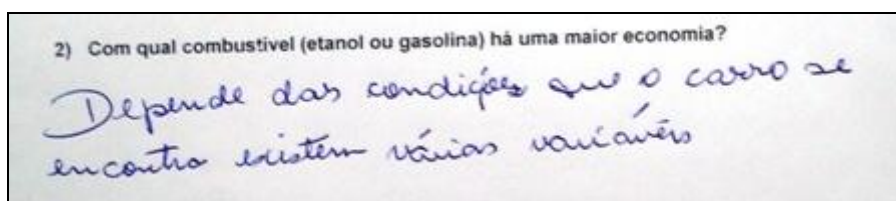 2) Com qual combustível (etanol ou gasolina) há uma maior economia?
Depende das condições que o carro se
encontra existem várias variavéis